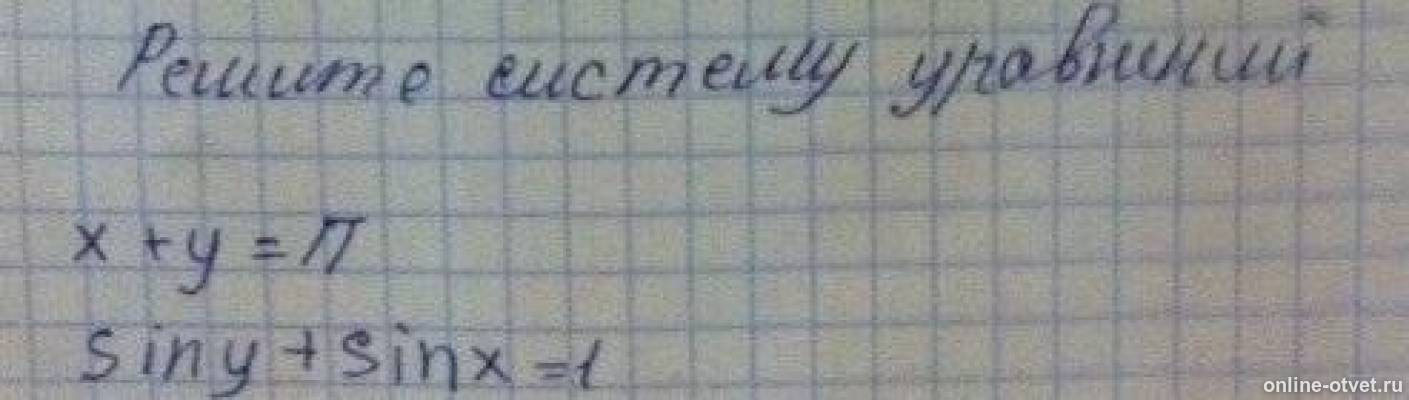 Решите систему уравнений
x + y = π
sin y + sin x = 1
online-otvet.ru